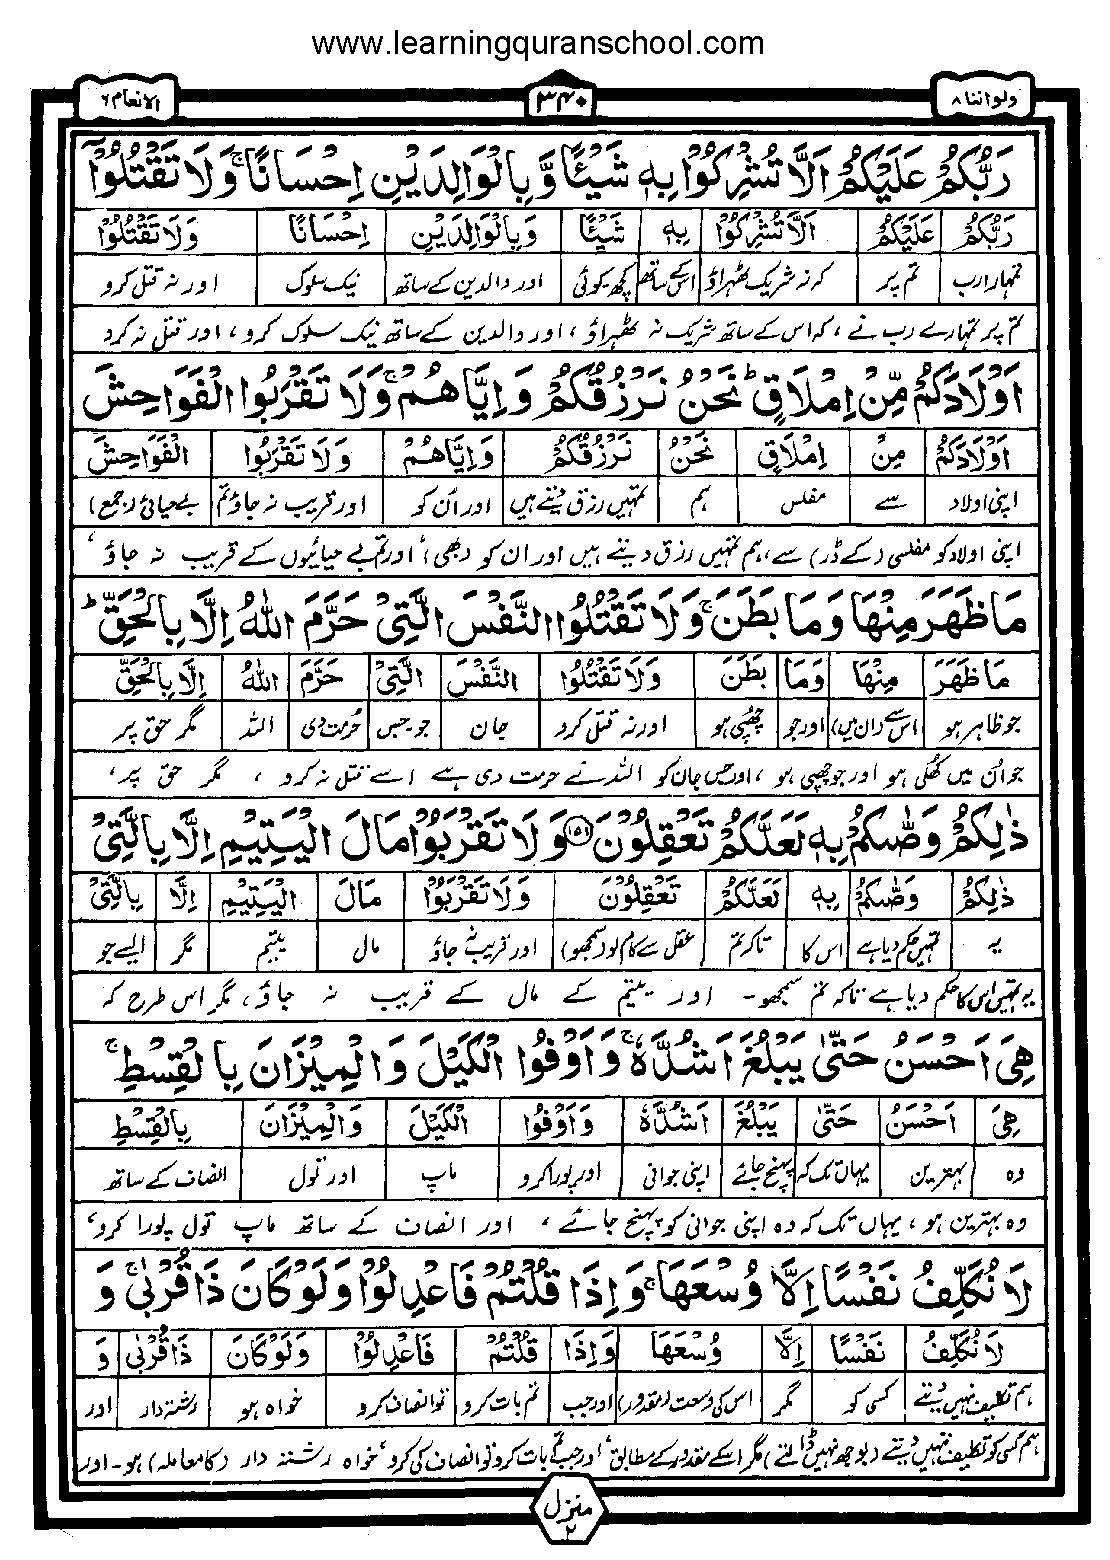 www.learningquranschool.com
ولواننا ۸
۳۴۰
الانعام ۶
رَبُّكُمْ عَلَيْكُمْ اَلَّا تُشْرِكُوْا بِهٖ شَيْئًا وَّبِالْوَالِدَيْنِ اِحْسَانًا ۚ وَلَا تَقْتُلُوْٓا
رَبُّكُمْ عَلَيْكُمْ اَلَّا تُشْرِكُوْا بِهٖ شَيْئًا وَبِالْوَالِدَيْنِ اِحْسَانًا وَلَا تَقْتُلُوْا
تمہارا رب تم پر کہ نہ شریک ٹھہراؤ اسکے ساتھ کچھ۔کوئی اور والدین کے ساتھ نیک سلوک اور نہ قتل کرو
تم پر تمہارے رب نے ، کہ اس کے ساتھ شریک نہ ٹھہراؤ ، اور والدین کے ساتھ نیک سلوک کرو ، اور قتل نہ کرو
اَوْلَادَكُمْ مِّنْ اِمْلَاقٍ ؕ نَحْنُ نَرْزُقُكُمْ وَاِيَّاهُمْ ۚ وَلَا تَقْرَبُوا الْفَوَاحِشَ
اَوْلَادَكُمْ مِنْ اِمْلَاقٍ نَحْنُ نَرْزُقُكُمْ وَاِيَّاهُمْ وَلَا تَقْرَبُوا الْفَوَاحِشَ
اپنی اولاد سے مفلس ہم تمہیں رزق دیتے ہیں اور اُن کو اور قریب نہ جاؤ تم بےحیائی (جمع)
اپنی اولاد کو مفلسی (کے ڈر) سے، ہم تمہیں رزق دیتے ہیں اور ان کو (بھی)، اور تم بے حیائیوں کے قریب نہ جاؤ ،
مَا ظَهَرَ مِنْهَا وَمَا بَطَنَ ۚ وَلَا تَقْتُلُوا النَّفْسَ الَّتِيْ حَرَّمَ اللّٰهُ اِلَّا بِالْحَقِّ ؕ
مَا ظَهَرَ مِنْهَا وَمَا بَطَنَ وَلَا تَقْتُلُوْا النَّفْسَ الَّتِيْ حَرَّمَ اللّٰهُ اِلَّا بِالْحَقِّ
جو ظاہر ہو اس سے (ان میں) اور جو چھپی ہو اور نہ قتل کرو جان جو۔جس حرمت دی اللہ مگر حق پر
جو اُن میں کھلی ہو اور جو چھپی ہو ، اور جس جان کو اللہ نے حرمت دی ہے اسے قتل نہ کرو ، مگر حق پر ،
ذٰلِكُمْ وَصّٰىكُمْ بِهٖ لَعَلَّكُمْ تَعْقِلُوْنَ ﴿۱۵۱﴾ وَلَا تَقْرَبُوْا مَالَ الْيَتِيْمِ اِلَّا بِالَّتِيْ
ذٰلِكُمْ وَصّٰىكُمْ بِهٖ لَعَلَّكُمْ تَعْقِلُوْنَ وَلَا تَقْرَبُوْا مَالَ الْيَتِيْمِ اِلَّا بِالَّتِيْ
یہ تمہیں حکم دیا ہے اس کا تاکہ تم عقل سے کام لو (سمجھو) اور قریب نہ جاؤ مال یتیم مگر ایسے جو
یہ تمہیں اس کا حکم دیا ہے تاکہ تم سمجھو۔ اور یتیم کے مال کے قریب نہ جاؤ، مگر اس طرح کہ
هِيَ اَحْسَنُ حَتّٰى يَبْلُغَ اَشُدَّهٗ ۚ وَاَوْفُوا الْكَيْلَ وَالْمِيْزَانَ بِالْقِسْطِ ۚ
هِيَ اَحْسَنُ حَتّٰى يَبْلُغَ اَشُدَّهٗ وَاَوْفُوا الْكَيْلَ وَالْمِيْزَانَ بِالْقِسْطِ
وہ بہترین یہاں تک کہ پہنچ جائے اپنی جوانی اور پورا کرو ماپ اور تول انصاف کے ساتھ
وہ بہترین ہو ، یہاں تک کہ وہ اپنی جوانی کو پہنچ جائے ، اور انصاف کے ساتھ ماپ تول پورا کرو ،
لَا نُكَلِّفُ نَفْسًا اِلَّا وُسْعَهَا ۚ وَاِذَا قُلْتُمْ فَاعْدِلُوْا وَلَوْ كَانَ ذَا قُرْبٰى ۚ وَ
لَا نُكَلِّفُ نَفْسًا اِلَّا وُسْعَهَا وَاِذَا قُلْتُمْ فَاعْدِلُوْا وَلَوْ كَانَ ذَا قُرْبٰى وَ
ہم تکلیف نہیں دیتے کسی کو مگر اس کی وسعت (مقدور) اور جب تم بات کرو تو انصاف کرو خواہ ہو رشتہ دار اور
ہم کسی کو تکلیف نہیں دیتے (بوجھ نہیں ڈالتے) مگر اسکے مقدور کے مطابق، اور جب تم بات کرو تو انصاف کی کرو، خواہ رشتہ دار (کا معاملہ) ہو۔ اور
منزل ۲